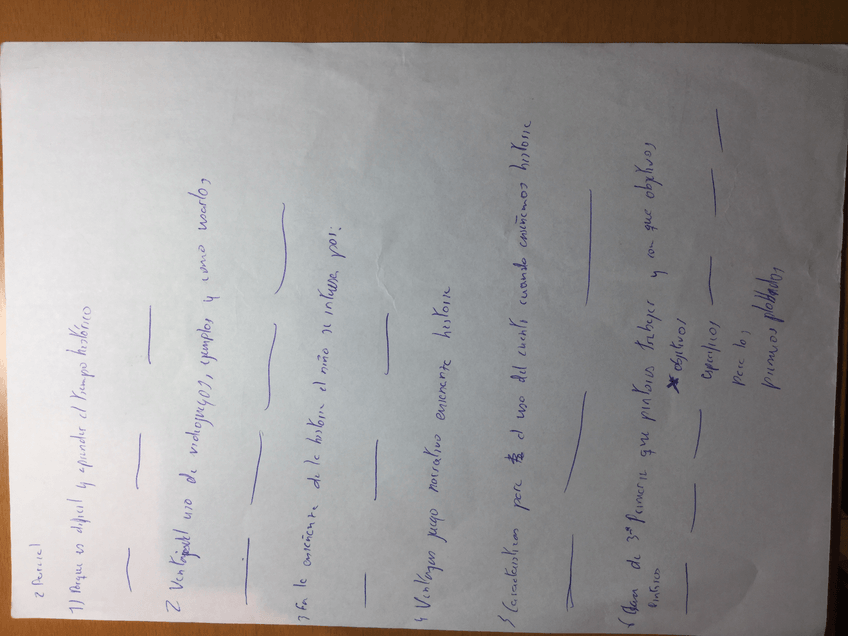 2 Parcial
1) Porque es dificil y aprender el tiempo histórico
2 Ventajas uso de videojuegos, ejemplos y como usarlos
3 En la enseñanza de la historia el niño se interesa por:
4 Ventajas juego narrativo enseñanza historia
5 Características para el uso del cuento cuando enseñamos historia
6 de 3º Primaria que pintores trabajar y con que objetivos
Pintores
objetivos
específicos
para los
primeros